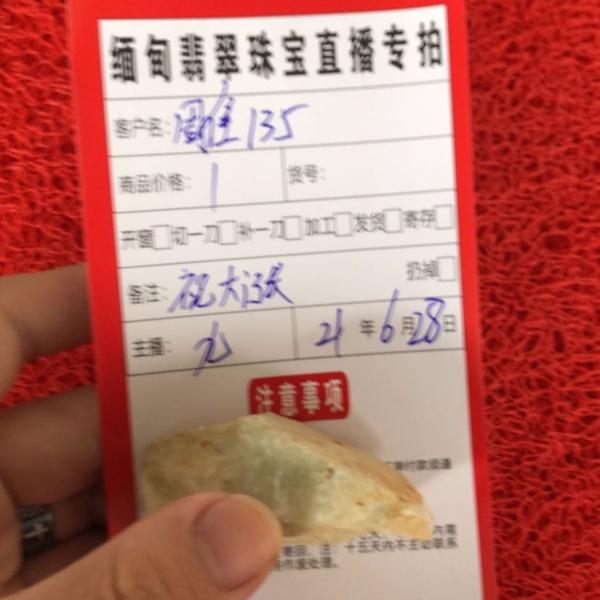 缅甸翡翠珠宝直播专拍
客户名：雕135
商品价格：1 货号：
开窗□切一刀□补一刀□加工□发货□寄存□
备注：祝大涨 扔掉□
主播： 21年6月28日
注意事项
付款须通
内需
寄回，注：十五天内不主动联系
作废处理。